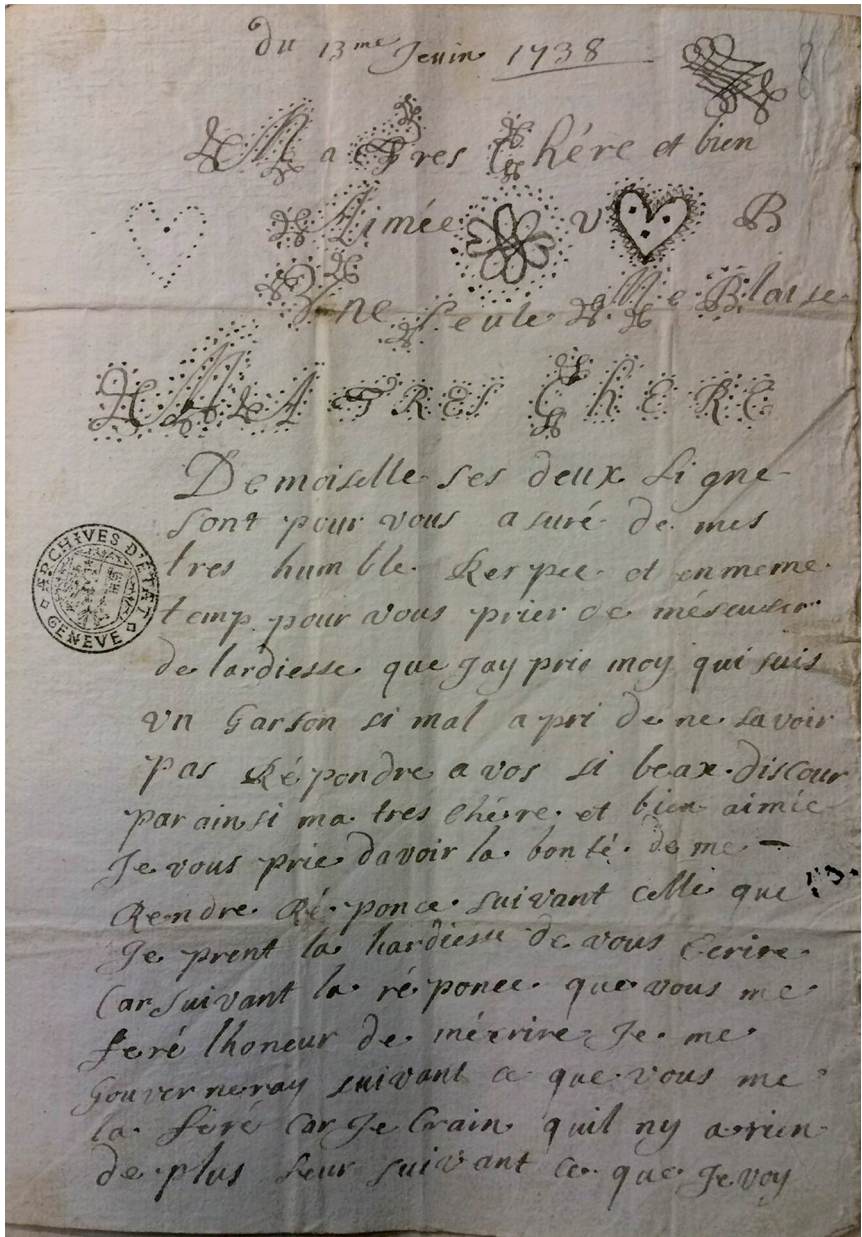 du 13me Jeuin 1738
Ma Tres Chére et bien
Aimée v B
Vne seule Me Blaise
MA TRES ChERE
Demoiselle ses deux ligne
sont pour vous asuré de mes
tres humble Respec et en meme
temp pour vous prier de méscuser
de lardiesse que Jay pris moy qui suis
vn Garson si mal apri de ne savoir
pas Répondre a vos si beax discour
par ainsi ma tres Chére et bien aimée
Je vous prie davoir la bonté de me
Rendre Réponce suivant celle que
Je prent la hardiesse de vous Ecrire
Car suivant la réponce que vous me
feré lhoneur de mécrire Je me
Gouverneray suivant ce que vous me
la feré Car Je Crain quil ny a rien
de plus seur suivant ce que Je voy
ARCHIVES D'ETAT
GENEVE